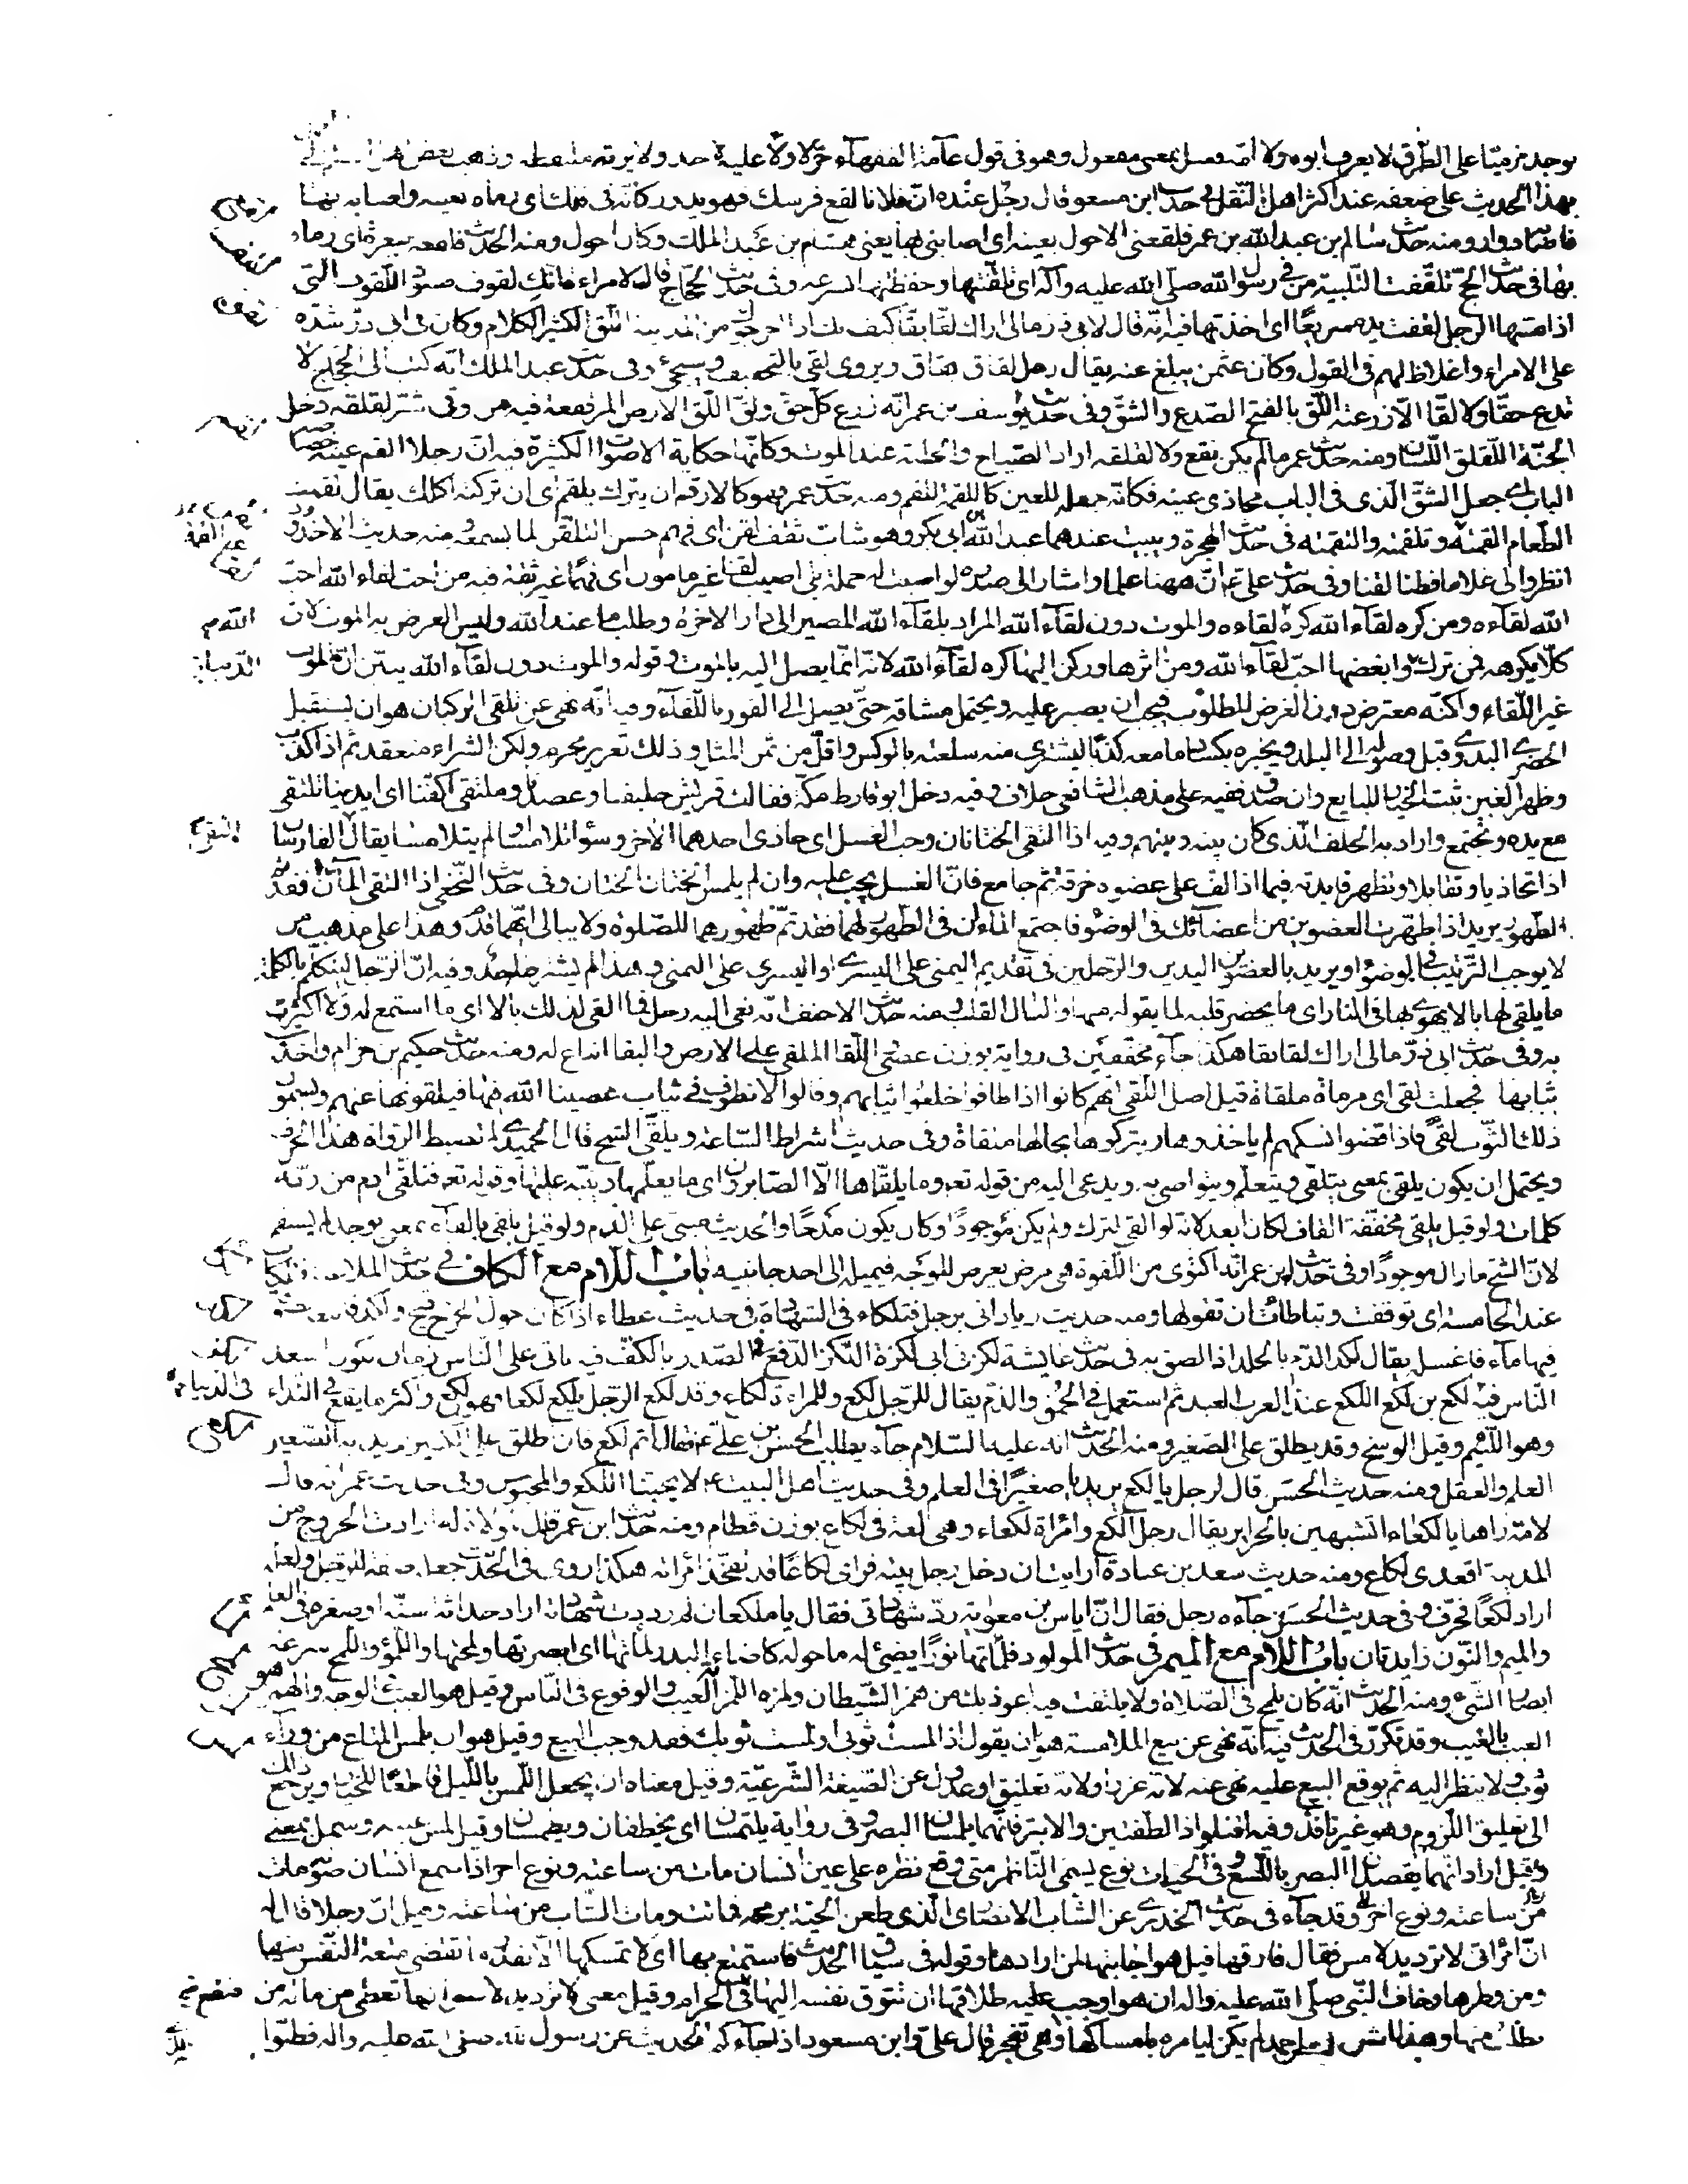 يوجد مرميّا على الطرق لا يعرف ابوه ولا امّه فعيل بمعنى مفعول وهو في قول عامة الفقهآء حرّ لا ولاء عليه لاحد ولا يرثه ملتقطه وذهب بعض اهل
بهذا الحديث على ضعفه عند اكثر اهل النقل في حديث ابن مسعود قال رجل عنده انّ فلانا لقع فرسك فهو يدور كانّه في فلك اى رماه بعينه واصابه بها
فاصابه دوار ومنه حديث سالم بن عبد الله بن عمر فلقعني الاحول بعينه اى اصابني بها يعني هشام بن عبد الملك وكان احول ومنه الحديث فلقعه ببعرة اى رماه
بها في حديث الحجّ تلقّفت التلبية من في رسول الله صلّى الله عليه وآله اى تلقّنتها وحفظتها بسرعة وفي حديث الحجّاج قال لامراة انّك لقوف صيود اللّقوف التى
اذا مسّها الرجل لقفت يده سريعًا اى اخذتها فيه انّه قال لابي ذر مالى اراك لقّا بقّا كيف بك اذا اخرجوك من المدينة اللّقّ الكثير الكلام وكان في ابي ذرّ شدّة
على الامراء واغلاظ لهم في القول وكان عثمن يبلغ عنه يقال رجل لقّاق بقّاق ويروى لقى بالتخفيف وسيجئ وفي حديث عبد الملك انّه كتب الى الحجّاج لا
تدع حقّا ولا لقّا الّا زرعته اللّقّ بالفتح الصّدع والشقّ وفي حديث يوسف بن عمر انّه زرع كلّ حقّ ولقّ اللّقّ الارض المرتفعة فيه من وقى شرّ لقلقه دخل
الجنّة اللّقلق اللّسان ومنه حديث عمر ما لم يكن نقع ولا لقلقة اراد الصّياح والجلبة عند الموت وكانّها حكاية الاصوات الكثيرة فيه انّ رجلا القم عينه خصاصة
الباب اى جعل الشقّ الّذى في الباب محاذى عينه فكانّه جعله للعين كاللقمة للفم ومنه حديث عمر فهو كالارقم ان يترك يلقم اى ان تركته اكلك يقال لقمت
الطعام القمه وتلقّمته والتقمته في حديث الهجرة ويبيت عندهما عبد الله بن ابي بكر وهو شاب ثقف لقن اى فهم حسن التلقّن لما يسمعه ومنه حديث الاخدود
انظروا لى غلاما فطنا لقنا وفي حديث علىّ ع انّ ههنا علما واشار الى صدره لو اصبت له حملة بلى اصيب لقنا غير مامون اى فهمًا غير ثقة فيه من احبّ لقاء الله احبّ
الله لقآءه ومن كره لقآء الله كره لقاءه والموت دون لقآء الله المراد بلقآء الله المصير الى دار الاخرة وطلب ما عند الله وليس الغرض به الموت لان
كلّا يكرهه فمن ترك وابغضها احبّ لقآء الله ومن اثرها وركن اليها كره لقآء الله لانّه انّما يصل اليه بالموت وقوله والموت دون لقآء الله يبيّن انّ الموت
غير اللّقاء ولكنّه معترض دون الغرض المطلوب فيجب ان يصبر عليه ويحتمل مشاقه حتّى يصل الى الفوز باللّقآء وفيه انّه نهى عن تلقى الركبان هو ان يستقبل
الحضرى البدوى قبل وصوله الى البلد ويخبره بكساد ما معه كذبًا ليشترى منه سلعته بالوكس واقلّ من ثمن المثل وذلك تغرير محرم ولكن الشراء منعقد ثم اذا كذب
وظهر الغبن ثبت الخيار للبايع وان صدق ففيه على مذهب الشافعى خلاف وفيه دخل ابو قارظ مكّة فقالت قريش حليفنا وعضدنا وملتقى اكفّنا اى ايدينا تلتقى
مع يده وتجتمع واراد به الحلف الّذى كان بينه وبينهم وفيه اذا التقى الختانان وجب الغسل اى حاذى احدهما الاخر وسواء تلامسا او لم يتلامسا يقال التقى الفارسان
اذا تحاذيا وتقابلا وتظهر فايدته فيما اذا لفّ على عضوه خرقة ثم جامع فانّ الغسل يجب عليه وان لم يلمس الختان الختان وفي حديث النخعى اذا التقى المآان فقد تمّ
الطهور يريد اذا طهّرت العضوين من اعضائك في الوضوء فاجتمع الماءان في الطهور لهما فقد تمّ طهورهما للصّلوة ولا يبالى ايّهما قدّم وهذا على مذهب من
لا يوجب الترتيب في الوضوء او يريد بالعضوين اليدين والرّجلين في تقديم اليمنى على اليسرى او اليسرى على اليمنى وهذا لم يشترطه احد وفيه انّ الرّجل ليتكلّم بالكلمة
ما يلقى لها بالا يهوى بها في النار اى ما يحضر قلبه لما يقوله منها والبال القلب ومنه حديث الاحنف انّه نعى اليه رجل فما القى لذلك بالا اى ما استمع له ولا اكترث
به وفي حديث ابي ذرّ مالى اراك لقا بقا هكذا جآء مخفّفين في رواية بوزن عصًى اللّقا الملقى على الارض والبقا اتباع له ومنه حديث حكيم بن حزام واخذت
ثيابها فجعلت لقى اى مرماة ملقاة قيل اصل اللّقى انهم كانوا اذا طافوا خلعوا ثيابهم وقالوا لا نطوف في ثياب عصينا الله فيها فيلقونها عنهم ويسمّون
ذلك الثوب لقًى فاذا قضوا نسكهم لم ياخذوها وتركوها بحالها ملقاة وفي حديث اشراط السّاعة ويلقى الشح قال الحميدى لم تضبط الرّواة هذا الحرف
ويحتمل ان يكون يلقّى بمعنى يتلقّى ويتعلّم ويتواصى به ويدعى اليه من قوله تعه وما يلقّاها الّا الصّابرون اى ما يعلّمها وينبّه عليها وقوله تعه فتلقّى ادم من ربّه
كلمات ولو قيل يلقى مخفّفة القاف لكان ابعد لانّه لو القى لترك ولم يكن موجودًا وكان يكون مدحًا والحديث مبنىّ على الذم ولو قيل يلفى بالفآء بمعنى يوجد لم يستقم
لانّ الشّح ما زال موجودًا وفي حديث ابن عمر انّه اكتوى من اللّقوة هى مرض يعرض للوجه فيميله الى احد جانبيه باب اللّام مع الكاف في حديث الملاعنة فتلكّات
عند الخامسة اى توقفت وتباطات ان تقولها ومنه حديث زياد اتى برجل فتلكاء في الشهادة في حديث عطاء اذا كان حول الجرح قيح ولكد فاتبعه بصوفة
فيها مآء فاغسله يقال لكد الدّم بالجلد اذا لصق به في حديث عايشة لكزنى ابي لكزة اللّكز الدّفع في الصّدر بالكفّ فيه ياتى على النّاس زمان يكون اسعد
النّاس فيه لكع بن لكع اللكع عند العرب العبد ثم استعمل في الحمق والذّم يقال للرّجل لكع وللمراة لكاع وقد لكع الرّجل يلكع لكعا فهو الكع واكثر ما يقع في النّداء
وهو اللّئيم وقيل الوسخ وقد يطلق على الصّغير ومنه الحديث انّه عليه السّلام جآء يطلب الحسن بن علىّ ع فقال اثم لكع فان اطلق على الكبير اريد به الصّغير
العلم والعقل ومنه حديث الحسن قال لرجل يا لكع يريد يا صغيرًا في العلم وفي حديث اهل البيت ع لا يحبّنا اللّكع والمحبوس وفي حديث عمر انّه قال
لامة راها يا لكعاء اتشبّهين بالحراير يقال رجل الكع وامراة لكعاء وهى لغة في لكاع بوزن قطام ومنه حديث ابن عمر قال لمولاة له ارادت الخروج من
المدينة اقعدى لكاع ومنه حديث سعد بن عبادة ارايت ان دخل رجل بيته فراى لكاعًا قد تفخّذ امراته هكذا روى في الحديث جعله صفة للرّجل ولعله
اراد لكعًا فحرّف وفي حديث الحسن جآءه رجل فقال انّ اياس بن معوية ردّ شهادتى فقال يا ملكعان لم رددت شهادته اراد حداثة سنّه او صغره في العلم
والميم والنّون زايدتان باب اللّام مع الميم في حديث المولد فلمأتها نورًا يضئ له ما حوله كاضاءة البدر لمأتها اى ابصرتها ولمحتها واللّمؤ واللّمح سرعة
ابصار الشّىء ومنه الحديث انّه كان يلمح في الصّلاة ولا يلتفت فيه اعوذ بك من همز الشّيطان ولمزه اللّمز العيب والوقوع في النّاس وقيل هو العيب في الوجه والهمز
العيب بالغيب وقد تكرّر في الحديث فيه انّه نهى عن بيع الملامسة هو ان يقول اذا لمست ثوبى او لمست ثوبك فقد وجب البيع وقيل هو ان يلمس المتاع من ورآء
ثوب ولا ينظر اليه ثم يوقع البيع عليه نهى عنه لانّه غرر او لانّه تعليق او عدول عن الصّيغة الشّرعيّة وقيل معناه ان يجعل اللّمس باللّيل قاطعًا للخيار ويرجع ذلك
الى تعليق اللّزوم وهو غير نافذ وفيه اقتلوا ذا الطفيتين والابتر فانّهما يلمسان البصر وفي رواية يلتمسان اى يخطفان ويطمسان وقيل لمس عينه وسمل بمعنى
وقيل اراد انّهما يقصدان البصر باللّسع وفي الحيات نوع يسمّى النّاظر متى وقع نظره على عين انسان مات من ساعته ونوع اخر اذا سمع انسان صوته مات
من ساعته ونوع اخر وقد جآء في حديث الخدرى عن الشاب الانصارى الّذى طعن الحيّة برمحه فماتت ومات الشّاب من ساعته وفيه انّ رجلا قال له
انّ امراتى لا تردّ يد لامس فقال فارقها قيل هو اجابتها لمن ارادها وقوله في سياق الحديث فاستمتع بها اى لا تمسكها الّا بقدر ما تقضى متعة النّفس منها
ومن وطرها وخاف النّبى صلّى الله عليه واله ان هو اوجب عليه طلاقها ان تتوق نفسه اليها فيقع في الحرام وقيل معنى لا تردّ يد لامس انها تعطى من ماله من
يطلب منها وهذا اشبه قال احمد لم يكن ليامره بامساكها وهى تفجر قال علىّ وابن مسعود اذا جآءكم الحديث عن رسول الله صلى الله عليه واله فظنّوا